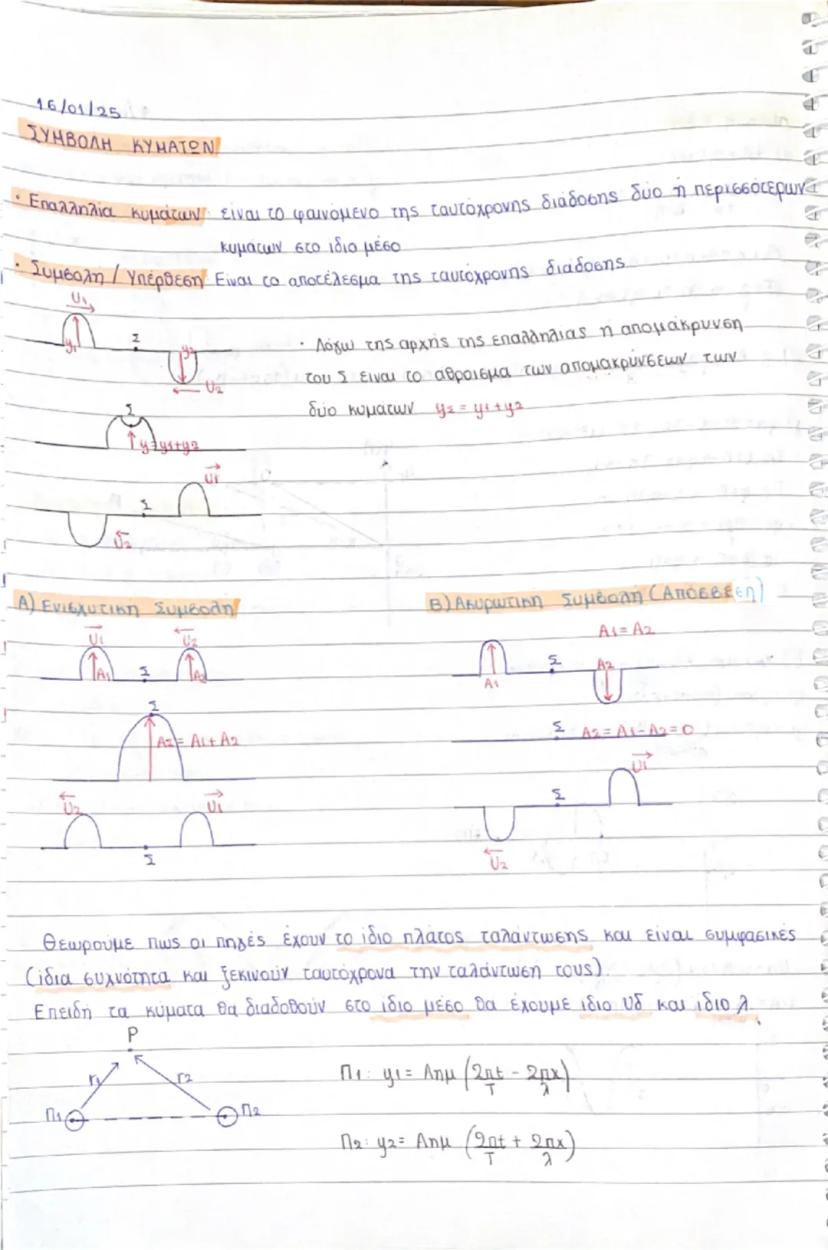 16/01/25
ΣΥΜΒΟΛΗ ΚΥΜΑΤΩΝ
· Επαλληλία κυμάτων: είναι το φαινόμενο της ταυτόχρονης διάδοσης δύο ή περισσότερων
κυμάτων στο ίδιο μέσο
· Συμβολή / Υπέρθεση Είναι το αποτέλεσμα της ταυτόχρονης διάδοσης
υ1
y1 Σ y2
υ2
· Λόγω της αρχής της επαλληλίας η απομάκρυνση
του Σ είναι το άθροισμα των απομακρύνσεων των
δύο κυμάτων yΣ = y1 + y2
Σ
y=y1+y2
υ1
Σ
υ2
Α) Ενισχυτική Συμβολή
υ1 υ2
A1 Σ A2
Σ
AΣ = A1 + A2
υ2 υ1
Σ
Β) Ακυρωτική Συμβολή (Απόσβεση)
A1 = A2
Σ A2
A1
Σ AΣ = A1 - A2 = 0
υ1
Σ
υ2
Θεωρούμε πως οι πηγές έχουν το ίδιο πλάτος ταλάντωσης και είναι συμφασικές
(ίδια συχνότητα και ξεκινούν ταυτόχρονα την ταλάντωση τους)
Επειδή τα κύματα θα διαδοθούν στο ίδιο μέσο θα έχουμε ίδιο υδ και ίδιο λ.
P
r1 r2
Π1 Π2
Π1: y1 = Aημ (2πt/T - 2πx/λ)
Π2: y2 = Aημ (2πt/T + 2πx/λ)